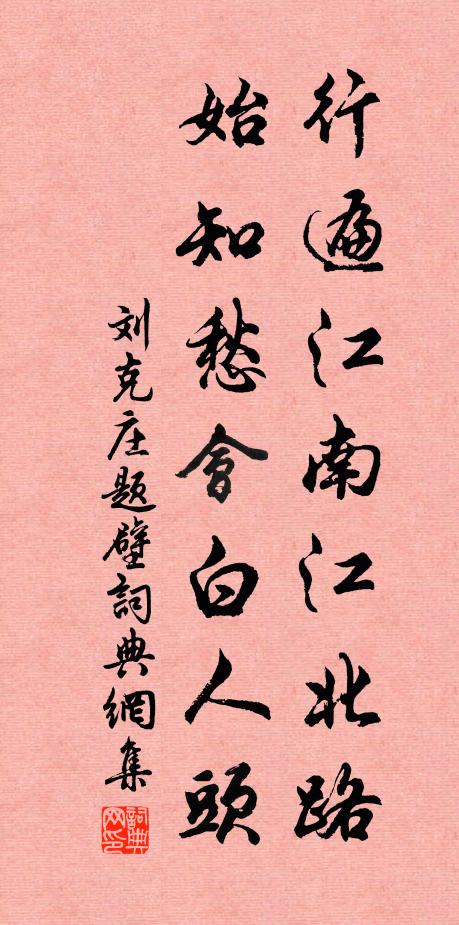 行遍江南江北路
始知愁會白人頭
刘克庄題壁詞典網集
詞典
网印